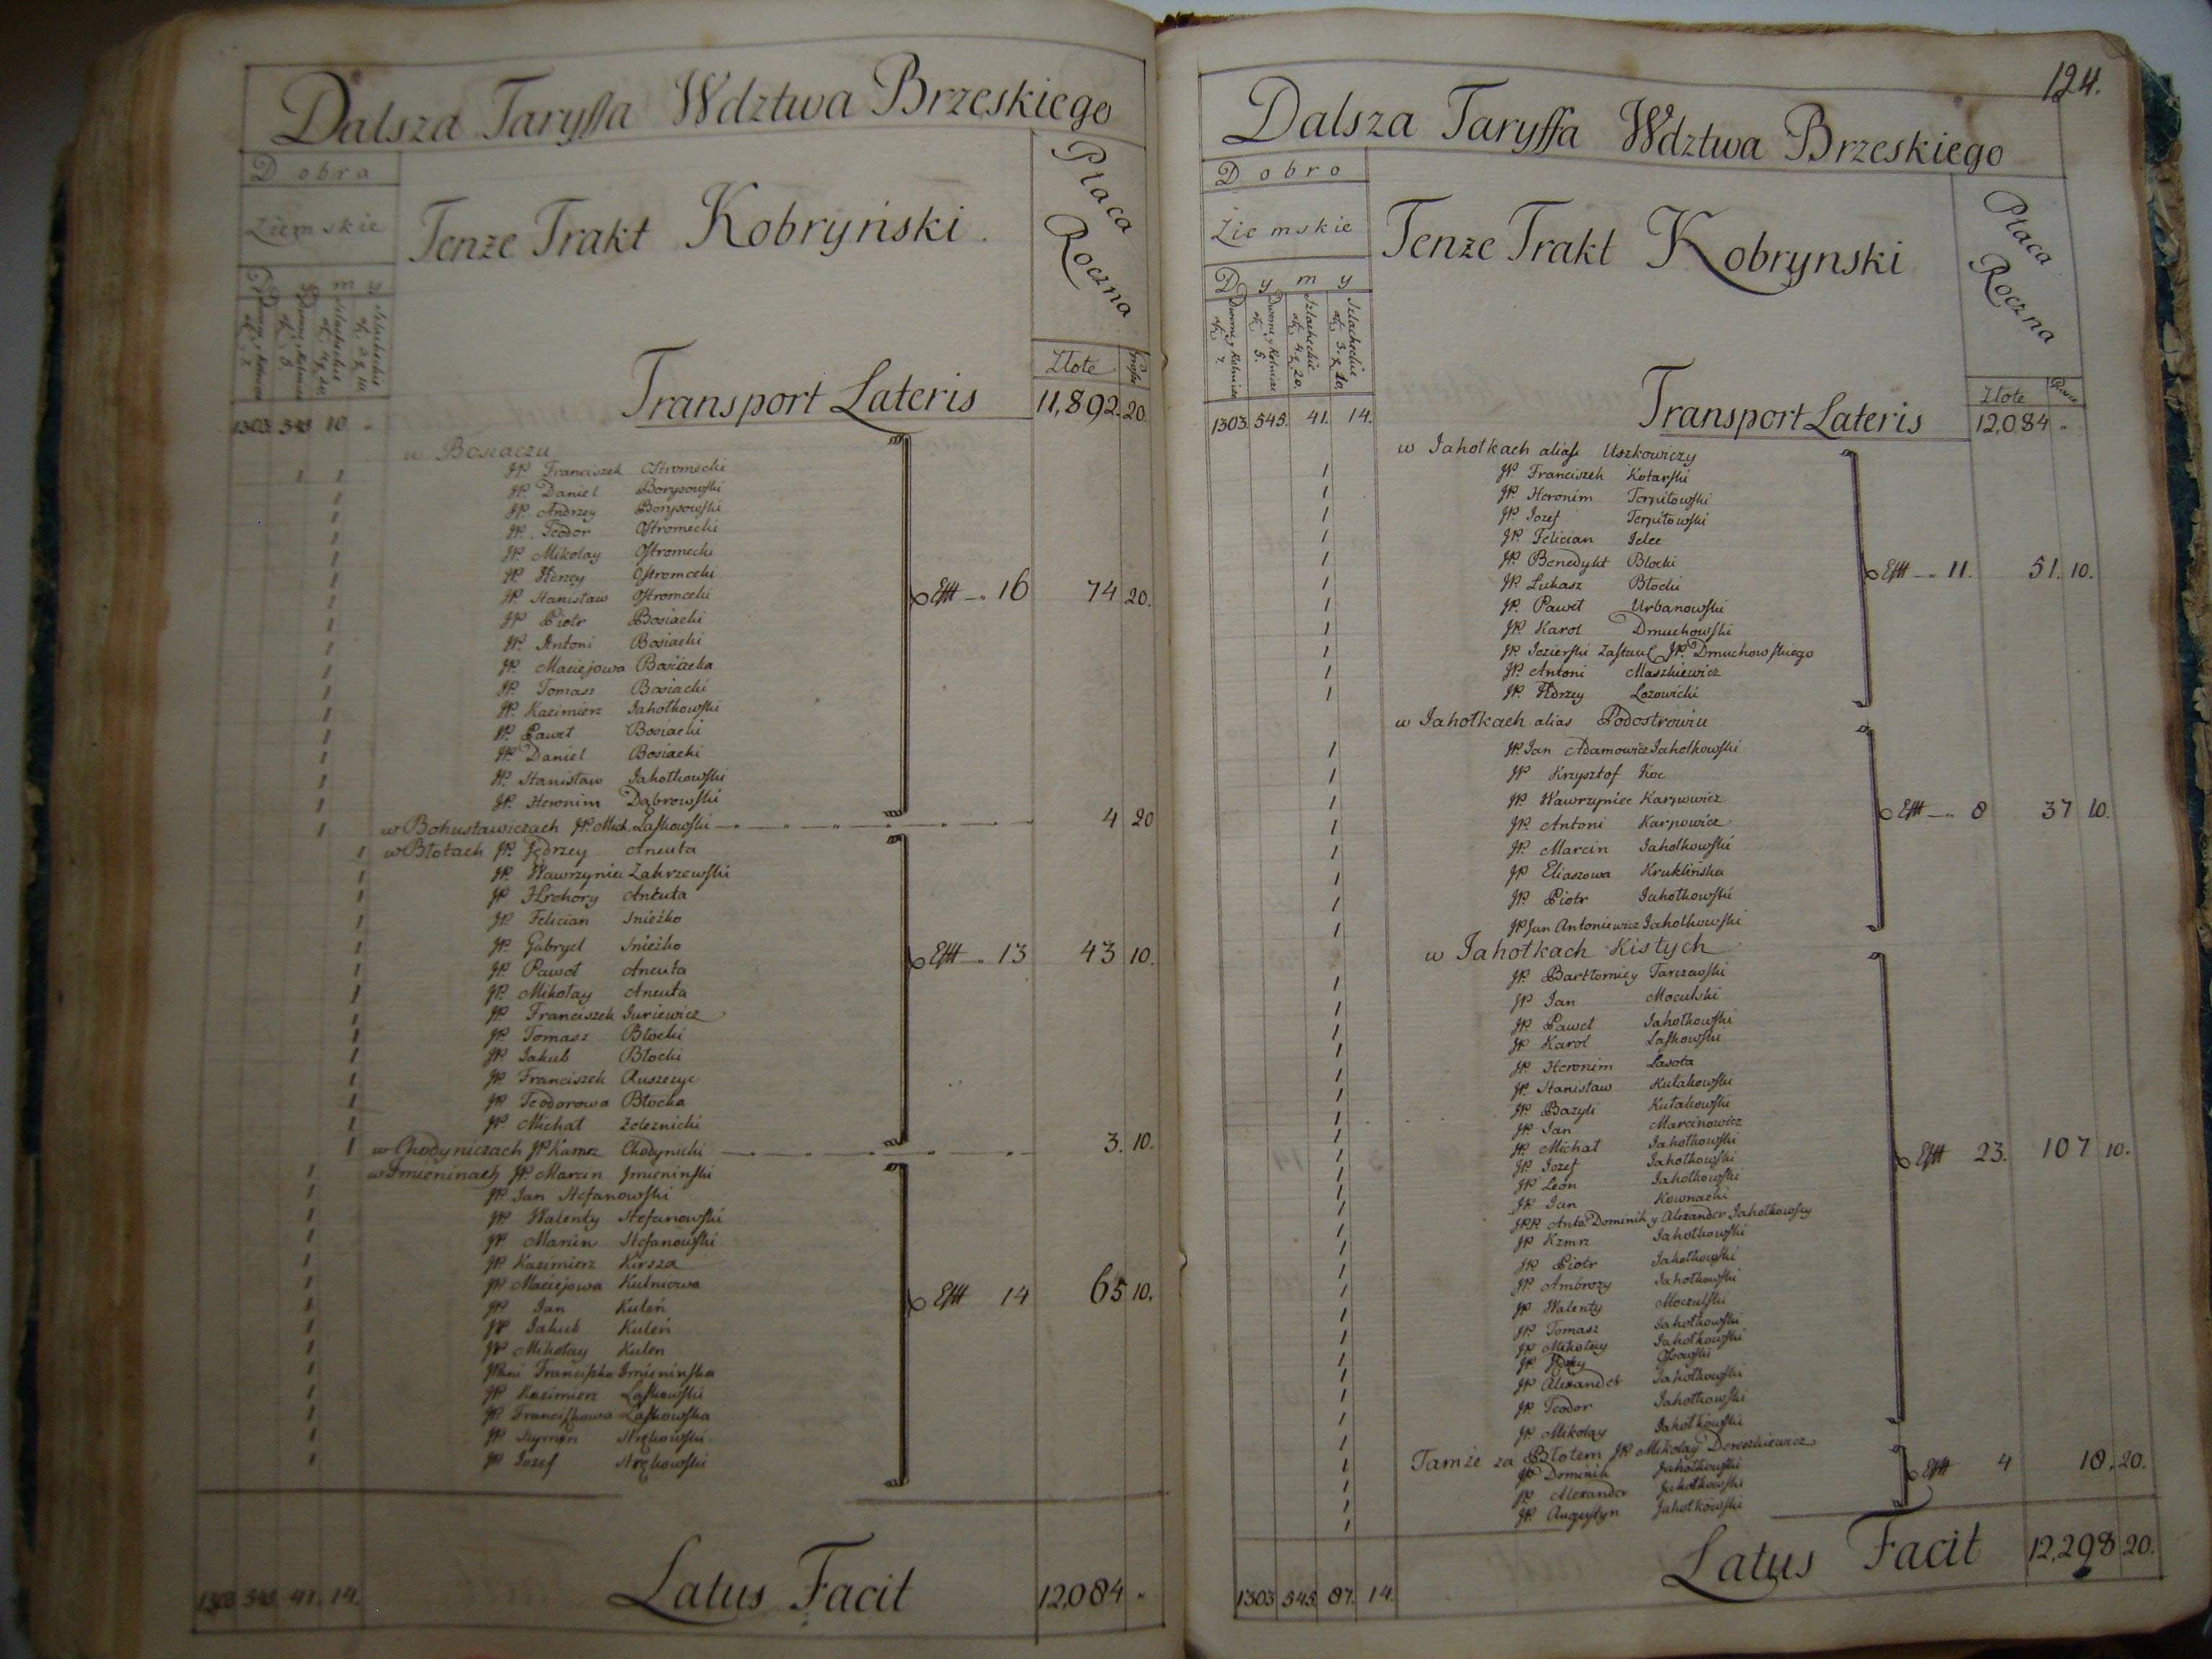 Dalsza Taryffa Wdztwa Brzeskiego
Dobra
Ziemskie
Dymy
Tenze Trakt Kobryński.
Płaca Roczna
Złote
Transport Lateris 11,892. 20.
1303 545 10 -
w Bosiaczu
JP. Franciszek Ostromecki
JP. Daniel Borysowski
JP. Andrzey Borysowski
JP. Teodor Ostromecki
JP. Mikołay Ostromecki
JP. Jędrzey Ostromecki
JP. Stanisław Ostromecki
JP. Piotr Bosiacki
JP. Antoni Bosiacki
JP. Maciejowa Bosiacka
JP. Tomasz Bosiacki
JP. Kazimierz Jahołkowski
JP. Paweł Bosiacki
JP. Daniel Bosiacki
JP. Stanisław Jahołkowski
JP. Heronim Dąbrowski
Efftt 16 74 20.
w Bohusławiczach JP. Mich. Laskowski 4 20
w Błotach JP. Jędrzey Aneuta
JP. Wawrzyniec Zakrzewski
JP. Hrehory Aneuta
JP. Felician Snieżko
JP. Gabryel Snieżko
JP. Paweł Aneuta
JP. Mikołay Aneuta
JP. Franciszek Juriewicz
JP. Tomasz Błocki
JP. Jakub Błocki
JP. Franciszek Ruszczyc
JP. Teodorowa Błocka
JP. Michał Zeleznicki
Efftt 13 43 10.
w Chodyniczach JP. Kazmrz Chodynicki 3. 10.
w Imieninach JP. Marcin Jmieninski
JP. Jan Stefanowski
JP. Walenty Stefanowski
JP. Marcin Stefanowski
JP. Kazimierz Kirsza
JP. Maciejowa Kulniowa
JP. Jan Kuleń
JP. Jakub Kuleń
JP. Mikołay Kulen
Franciszka Jmieninska
JP. Kazimierz Laskowski
JP. Franciszkowa Laskowska
JP. Szymon Strękowski
JP. Jozef Strękowski
Efftt 14 65 10.
1303 545 41. 14.
Latus Facit 12,084 -
124.
Dalsza Taryffa Wdztwa Brzeskiego
Dobro
Ziemskie
Dymy
Tenze Trakt Kobrynski
Płaca Roczna
Złote
Transport Lateris 12,084 -
1303. 545. 41. 14.
w Jahołkach alias Uszkowiczy
JP. Franciszek Kotarski
JP. Heronim Terpiłowski
JP. Jozef Terpiłowski
JP. Felician Jelec
JP. Benedykt Błocki
JP. Łukasz Błocki
JP. Paweł Urbanowski
JP. Karol Dmuchowski
JP. Jezierski Zastaw JP. Dmuchowskiego
JP. Antoni Maszkiewicz
JP. Jędrzey Łozowicki
Efftt 11. 51. 10.
w Jahołkach alias Podostrowiu
JP. Jan Adamowicz Jahołkowski
JP. Krzysztof Koc
JP. Wawrzyniec Karpowicz
JP. Antoni Karpowicz
JP. Marcin Jahołkowski
JP. Eliaszowa Kruklińska
JP. Piotr Jahołkowski
JP. Jan Antoniewicz Jahołkowski
Efftt 8 37 10.
w Jahołkach Kistych
JP. Bartłomiey Tarczewski
JP. Jan Moculski
JP. Paweł Jahołkowski
JP. Karol Laskowski
JP. Heronim Lasota
JP. Stanisław Kułakowski
JP. Bazyli Kułakowski
JP. Jan Marcinowicz
JP. Michał Jahołkowski
JP. Jozef Jahołkowski
JP. Leon Jahołkowski
JP. Jan Kownacki
JPP. Anto. Dominik y Alexander Jahołkowscy
JP. Kzmrz Jahołkowski
JP. Piotr Jahołkowski
JP. Ambroży Jahołkowski
JP. Walenty Moczulski
JP. Tomasz Jahołkowski
JP. Mikołay Jahołkowski
JP. Jędrzey Ossowski
JP. Alexander Jahołkowski
JP. Teodor Jahołkowski
JP. Mikołay Jahołkowski
Efftt 23. 107 10.
Tamże za Błotem JP. Mikołay Dereszkiewicz
JP. Dominik Jahołkowski
JP. Alexander Jahołkowski
JP. Augustyn Jahołkowski
Efftt 4 18. 20.
1303 545 87. 14.
Latus Facit 12,298 20.